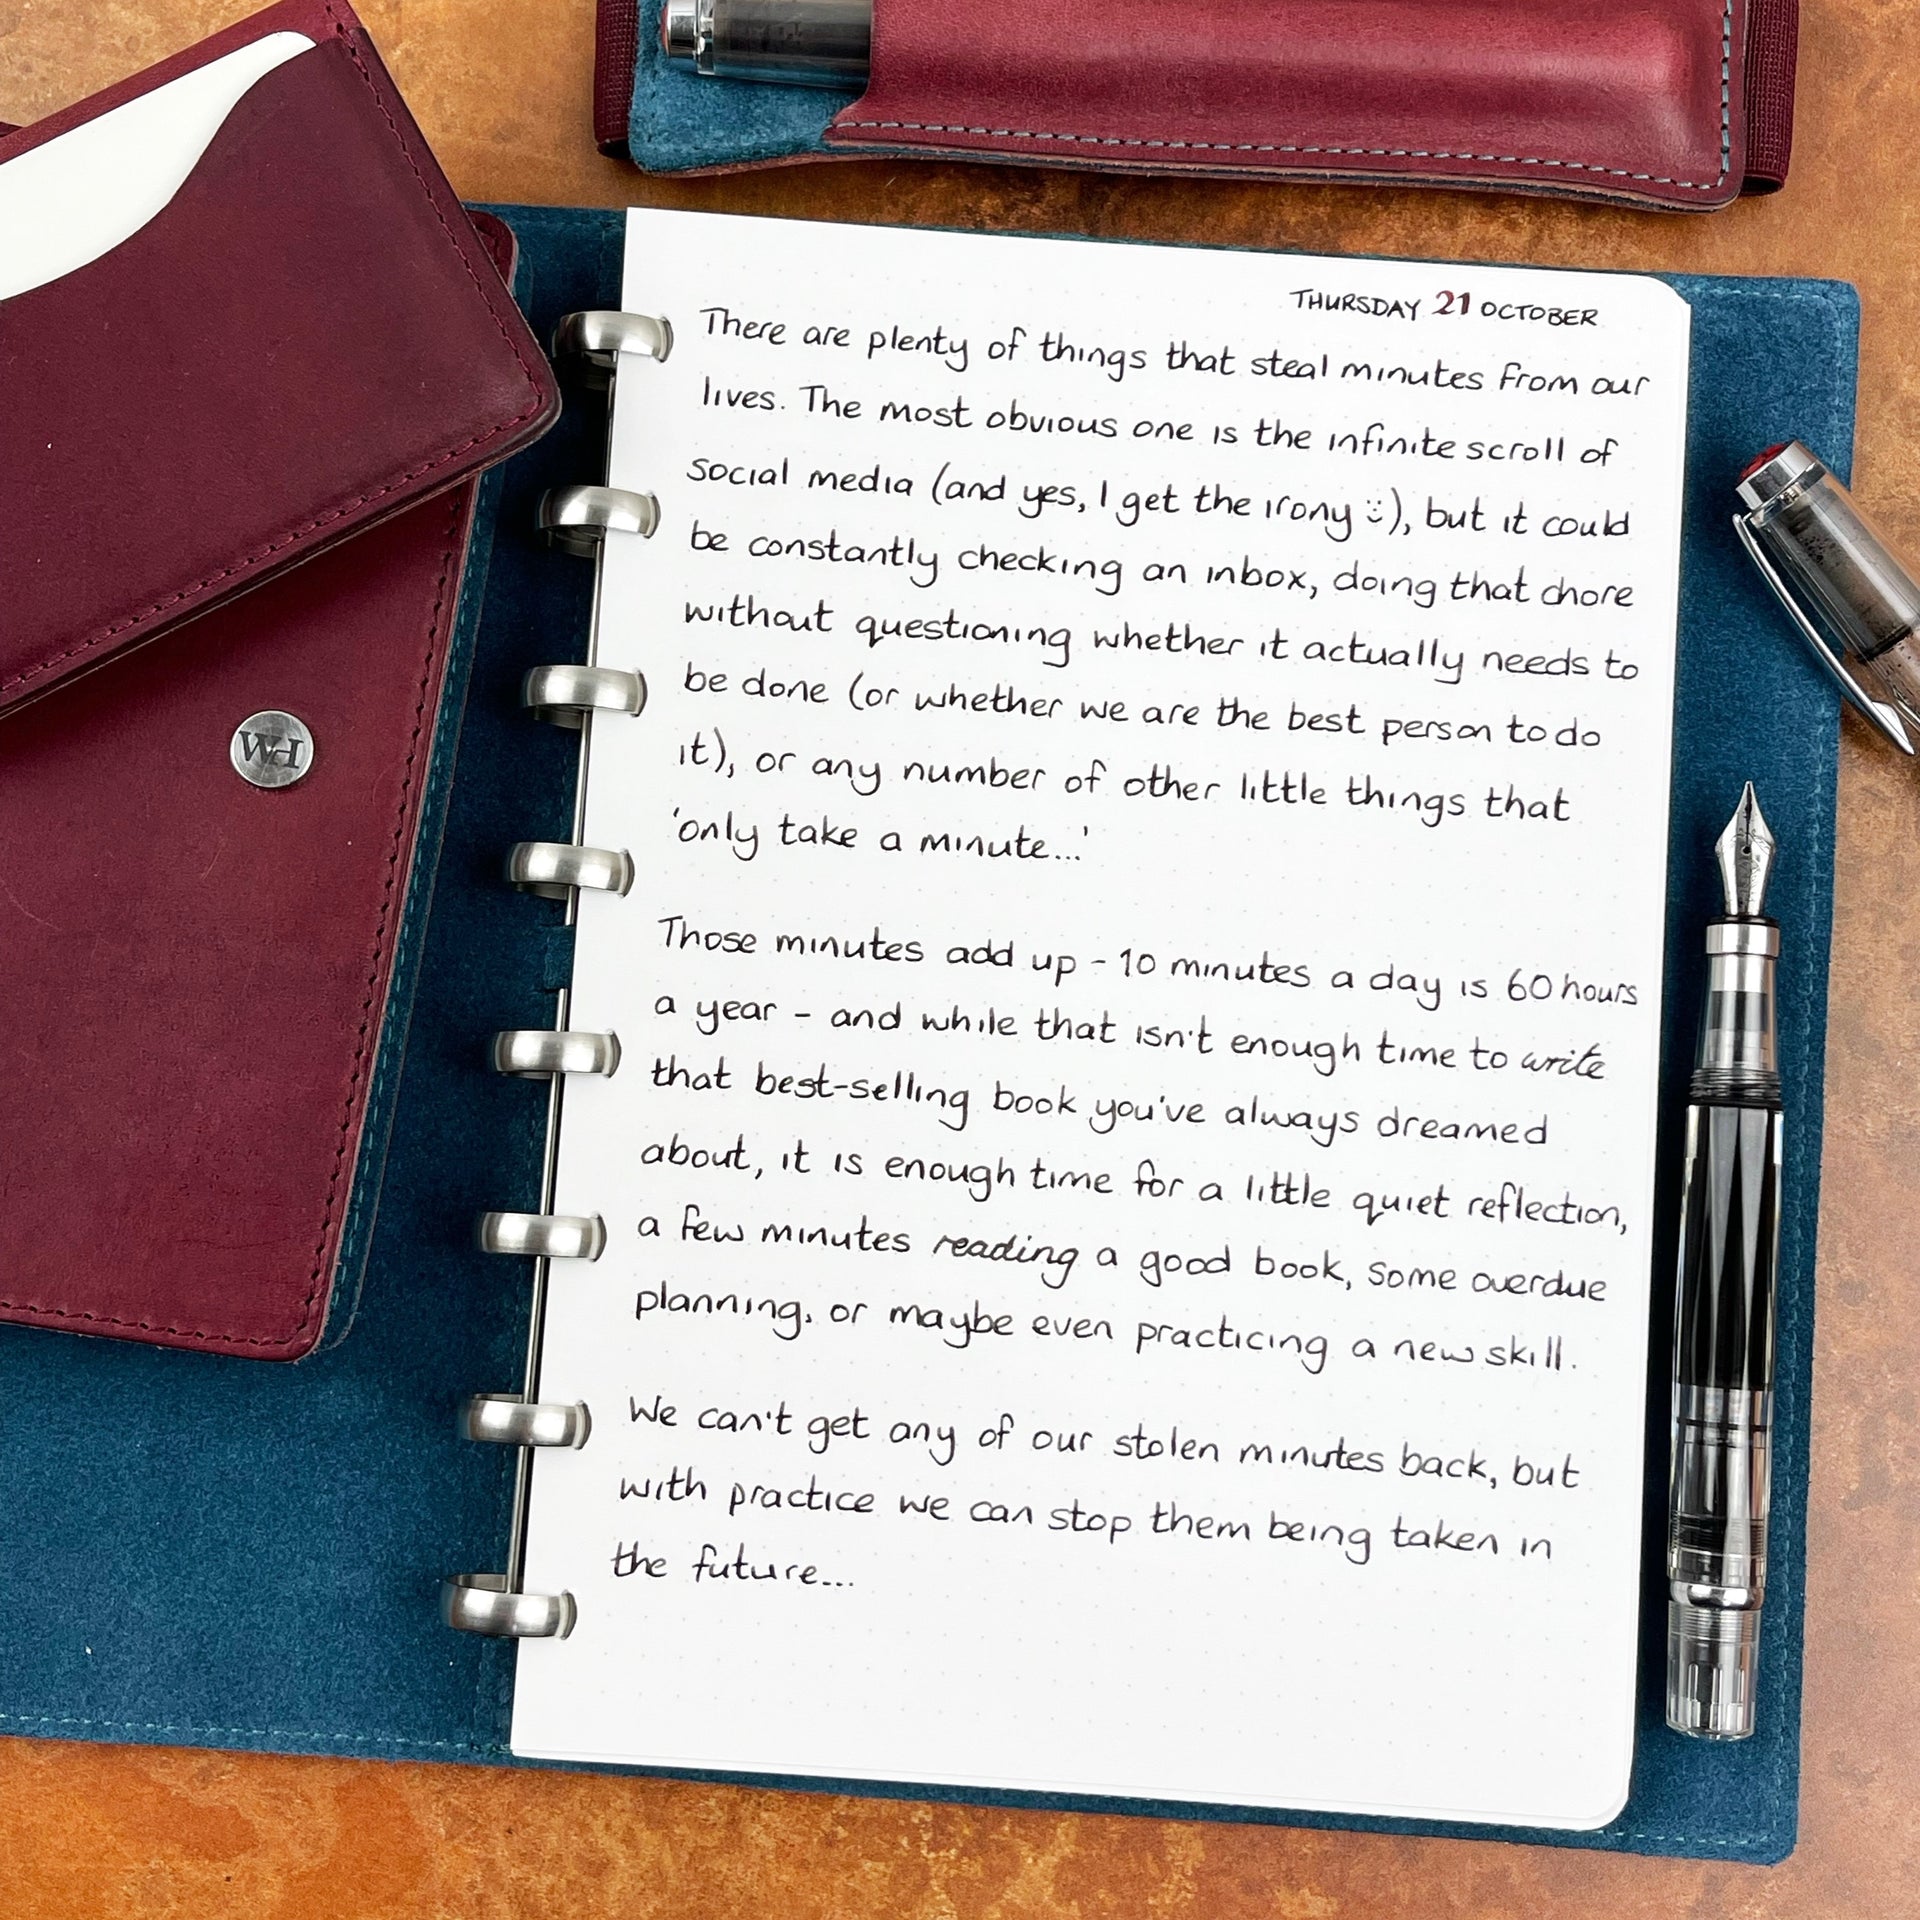 THURSDAY 21 OCTOBER
There are plenty of things that steal minutes from our
lives. The most obvious one is the infinite scroll of
social media (and yes, I get the irony :)), but it could
be constantly checking an inbox, doing that chore
without questioning whether it actually needs to
be done (or whether we are the best person to do
it), or any number of other little things that
'only take a minute...'
Those minutes add up - 10 minutes a day is 60 hours
a year - and while that isn't enough time to write
that best-selling book you've always dreamed
about, it is enough time for a little quiet reflection,
a few minutes reading a good book, some overdue
planning, or maybe even practicing a new skill.
We can't get any of our stolen minutes back, but
with practice we can stop them being taken in
the future...
WH